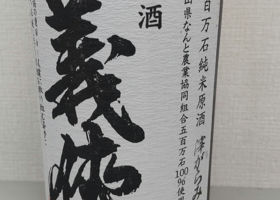 百万石純米原酒 滓がらみ
山県なんと農業協同組合五百万石100%使用
酒
義侠